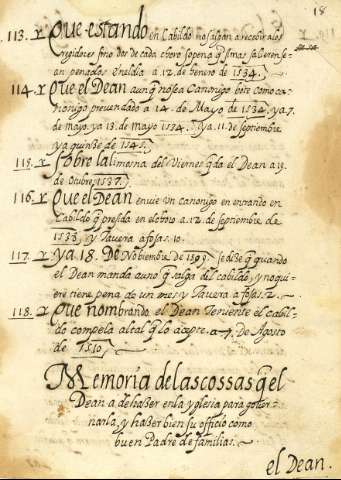 18
113. Que estando en Cabildo no salgan a recebir a los
Regidores sino dos de cada choro sopena q si mas salieren se-
an penados en el dia a 12. de henero de 1534.
114. Que el Dean aunq no sea Canonigo bote como ca-
nonigo prevendado a 14. de Mayo de 1534. ya 7.
de mayo, ya 13. de mayo 1534. ya 11. de septiembre
ya quinze de 1545.
115. Sobre la limosna del Viernes q da el Dean a 19.
de Octubre 1537.
116. Que el Dean envie un canonigo en entrando en
Cabildo q presida en el choro a 12. de septiembre de
1533, y Tavera a fojas. 10.
117. ya 18. De Noviembre de 1899. se dize q quando
el Dean manda a uno q salga del cabildo, y no qui-
ere tiene pena de un mes y Tavera a fojas. 2.
118. Que nombrando el Dean Teniente el cabil-
do compela al tal q lo acepte. a 7. de Agosto
de 1510
Memoria de las cossas q el
Dean a de hazer en la yglesia para gover-
narla, y hazer bien su officio como
buen Padre de familias.
el Dean.